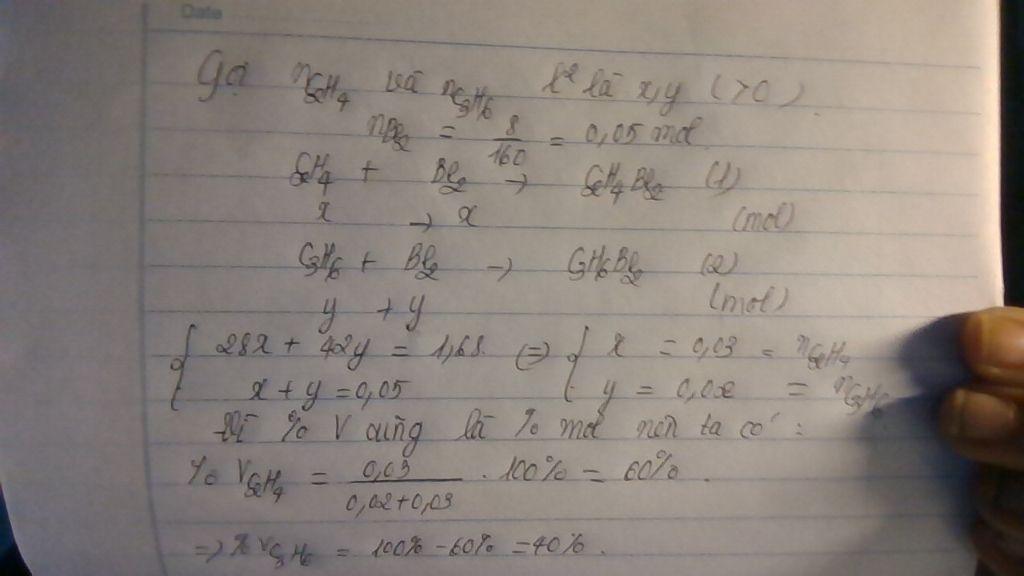 Date
Gọi nC2H4 và nC3H6 lần lượt là x,y (>0)
nBr2 = 8/160 = 0,05 mol
C2H4 + Br2 → C2H4Br2 (1)
x → x (mol)
C3H6 + Br2 → C3H6Br2 (2)
y → y (mol)
{ 28x + 42y = 1,68 (=) { x = 0,03 = nC2H4
x + y = 0,05 y = 0,02 = nC3H6
Vì % V cũng là % mol nên ta có :
% VC2H4 = 0,03/(0,02+0,03) . 100% = 60%.
=> % VC3H6 = 100% - 60% = 40%.